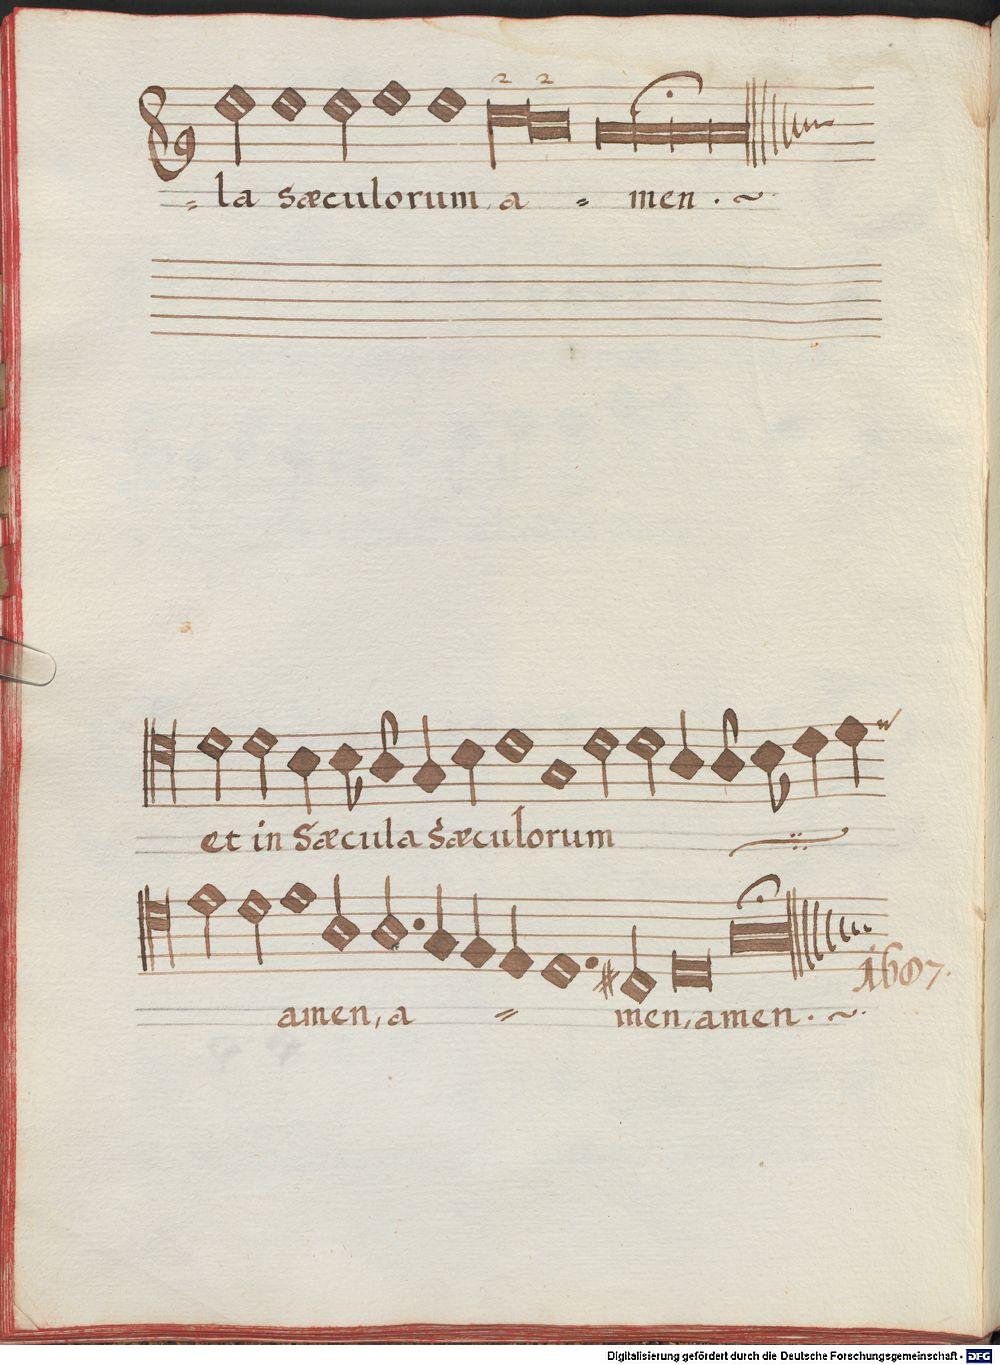 2 2
= la sæculorum, a = men . ~
et in Sæcula sæculorum
amen, a = men, amen . ~.
1607.
Digitalisierung gefördert durch die Deutsche Forschungsgemeinschaft - DFG